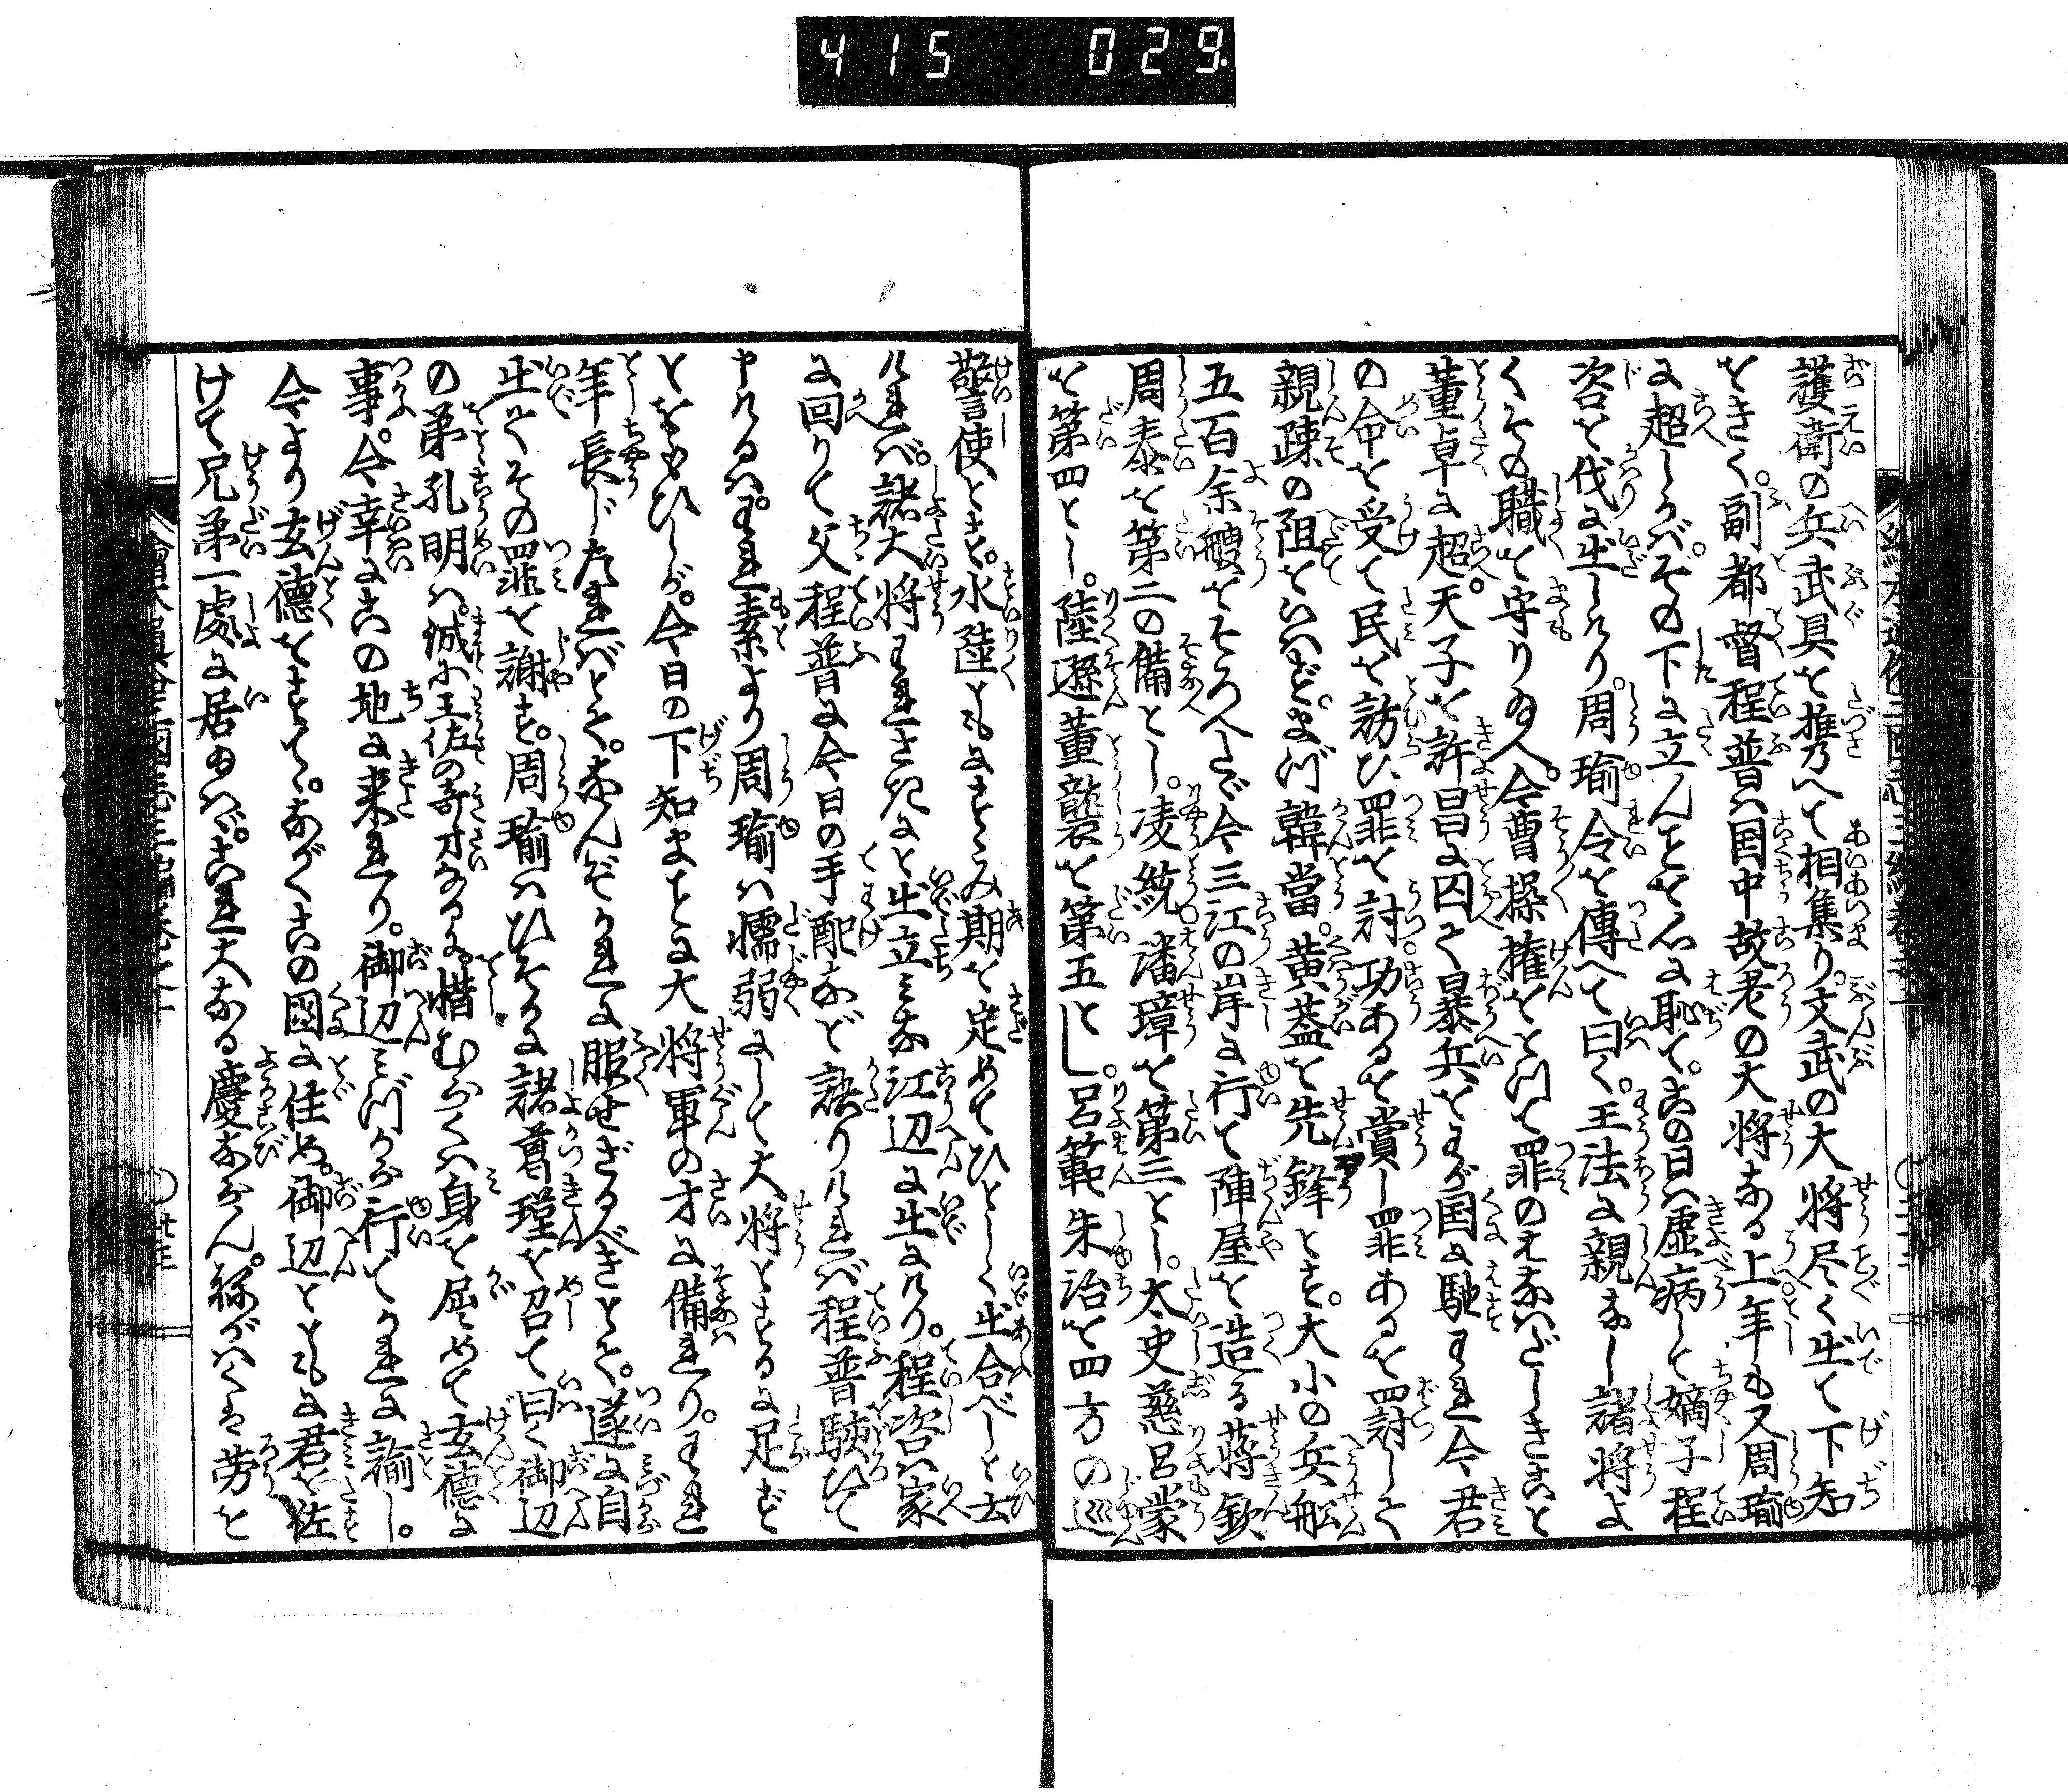 415 029.
護衛の兵武具を携へて相集り。文武の大将尽く出て下知
をきく。副都督程普は国中故老の大将なる上年も又周瑜
に超しかば。その下に立んことを心に恥て。この日は虚病して嫡子程
咨を代に出しけり。周瑜令を傳へて曰く。王法に親なし諸将よ
くその職を守り給へ。今曹操権をとつて罪の大なはだしきこと
董卓に超。天子を許昌に囚て暴兵をわが国に馳われ今君
の命を受て民を訪ひ罪を討。功あるを賞し罪あるを罰して
親疎の阻をいはず。まづ韓當。黄蓋を先鋒とす。大小の兵船
五百余艘をそろへて今三江の岸に行て陣屋を造る蒋欽
周泰を第二の備とし。凌統。潘璋を第三とし。太史慈呂蒙
を第四とし。陸遜董襲を第五とし。呂範朱治を四方の巡
警使とす。水陸ともにすゝみ期を定めてひとしく出合べしと云
ければ。諸大将われさきにと出立みな江辺に出にけり。程咨は家
に回りて父程普に今日の手配など語りければ程普駭ひて
申けるは。われ素より周瑜は懦弱にして大将とするに足ず
とをもひしが。今日の下知まことに大将軍の才に備れり。われ
年長じたればとて。なんぞかれに服せざるべきとて。遂に自
出てその罪を謝す。周瑜はひそかに諸葛瑾を召て曰く御辺
の弟孔明は。誠に王佐の奇才なるに。惜むらくは身を屈めて玄徳に
事。今幸にこの地に来れり。御辺みづから行てかれに諭し。
今より玄徳をすてゝ。ながくこの國に住め。御辺とともに君を佐
けて兄弟一處に居給はゞ。これ大なる慶ならん。願がはくは労を